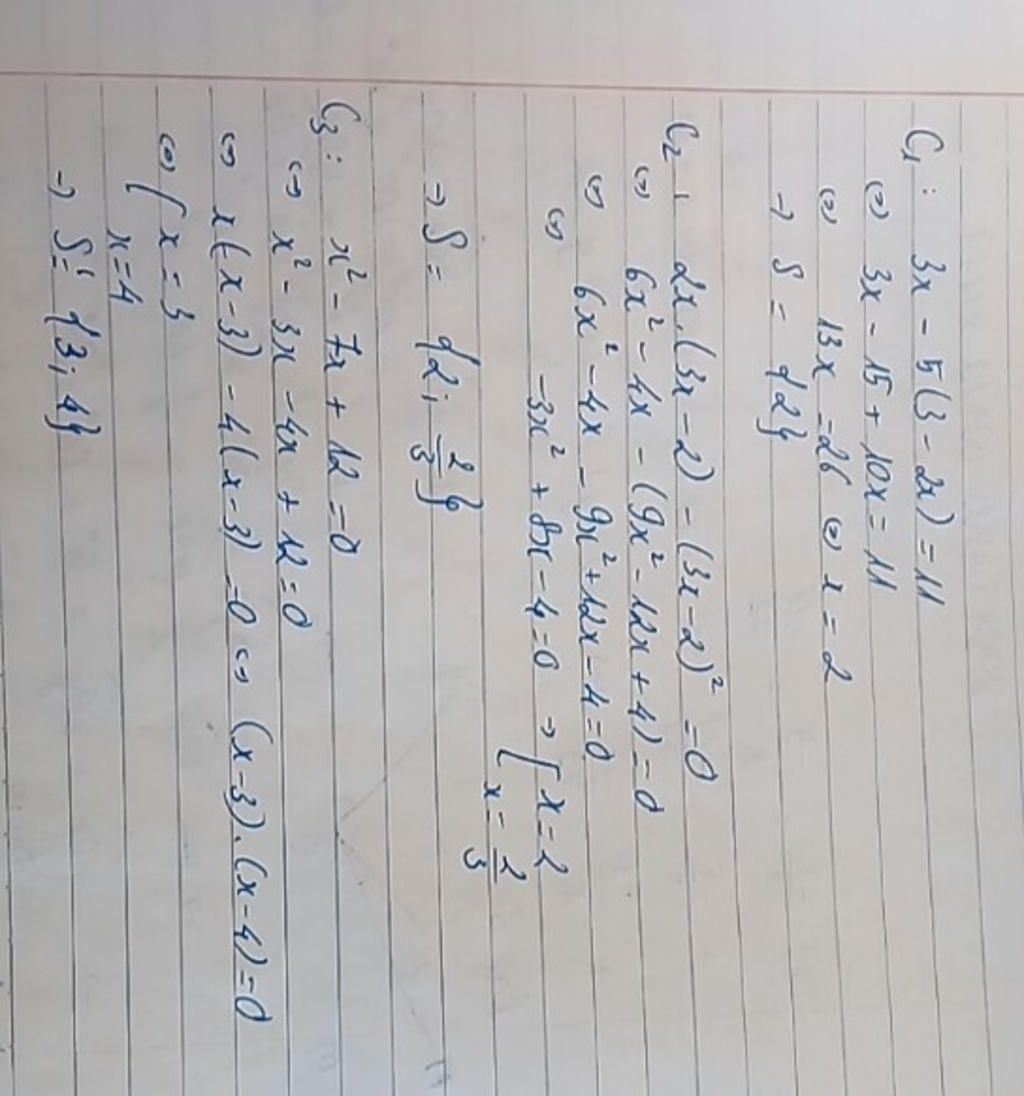 C₁ : 3x - 5(3 - 2x) = 11
⇔ 3x - 15 + 10x = 11
⇔ 13x = 26 ⇔ x = 2
→ S = {2}
C₂ : 2x.(3x - 2) - (3x - 2)² = 0
⇔ 6x² - 4x - (9x² - 12x + 4) = 0
⇔ 6x² - 4x - 9x² + 12x - 4 = 0
⇔ -3x² + 8x - 4 = 0 → [ x = 2
x = 2/3
→ S = {2; 2/3}
C₃ : x² - 7x + 12 = 0
⇔ x² - 3x - 4x + 12 = 0
⇔ x(x - 3) - 4(x - 3) = 0 ⇔ (x - 3).(x - 4) = 0
⇔ [ x = 3
x = 4
→ S = {3; 4}